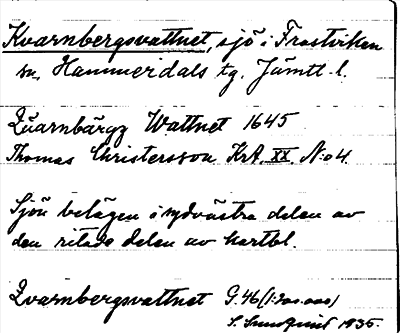 Kvarnbergsvattnet, sjö i Frostviken
sn, Hammerdals tg, Jämtl. l.
Quarnbärgz Wattnet 1645
Thomas Christersson KrA. XX. N:o 4.
Sjön belägen i sydvästra delen av
den ritade delen av kartbl.
Qvarnbergsvattnet G. 46 (1:200.000)
S. Sundquist 1935.